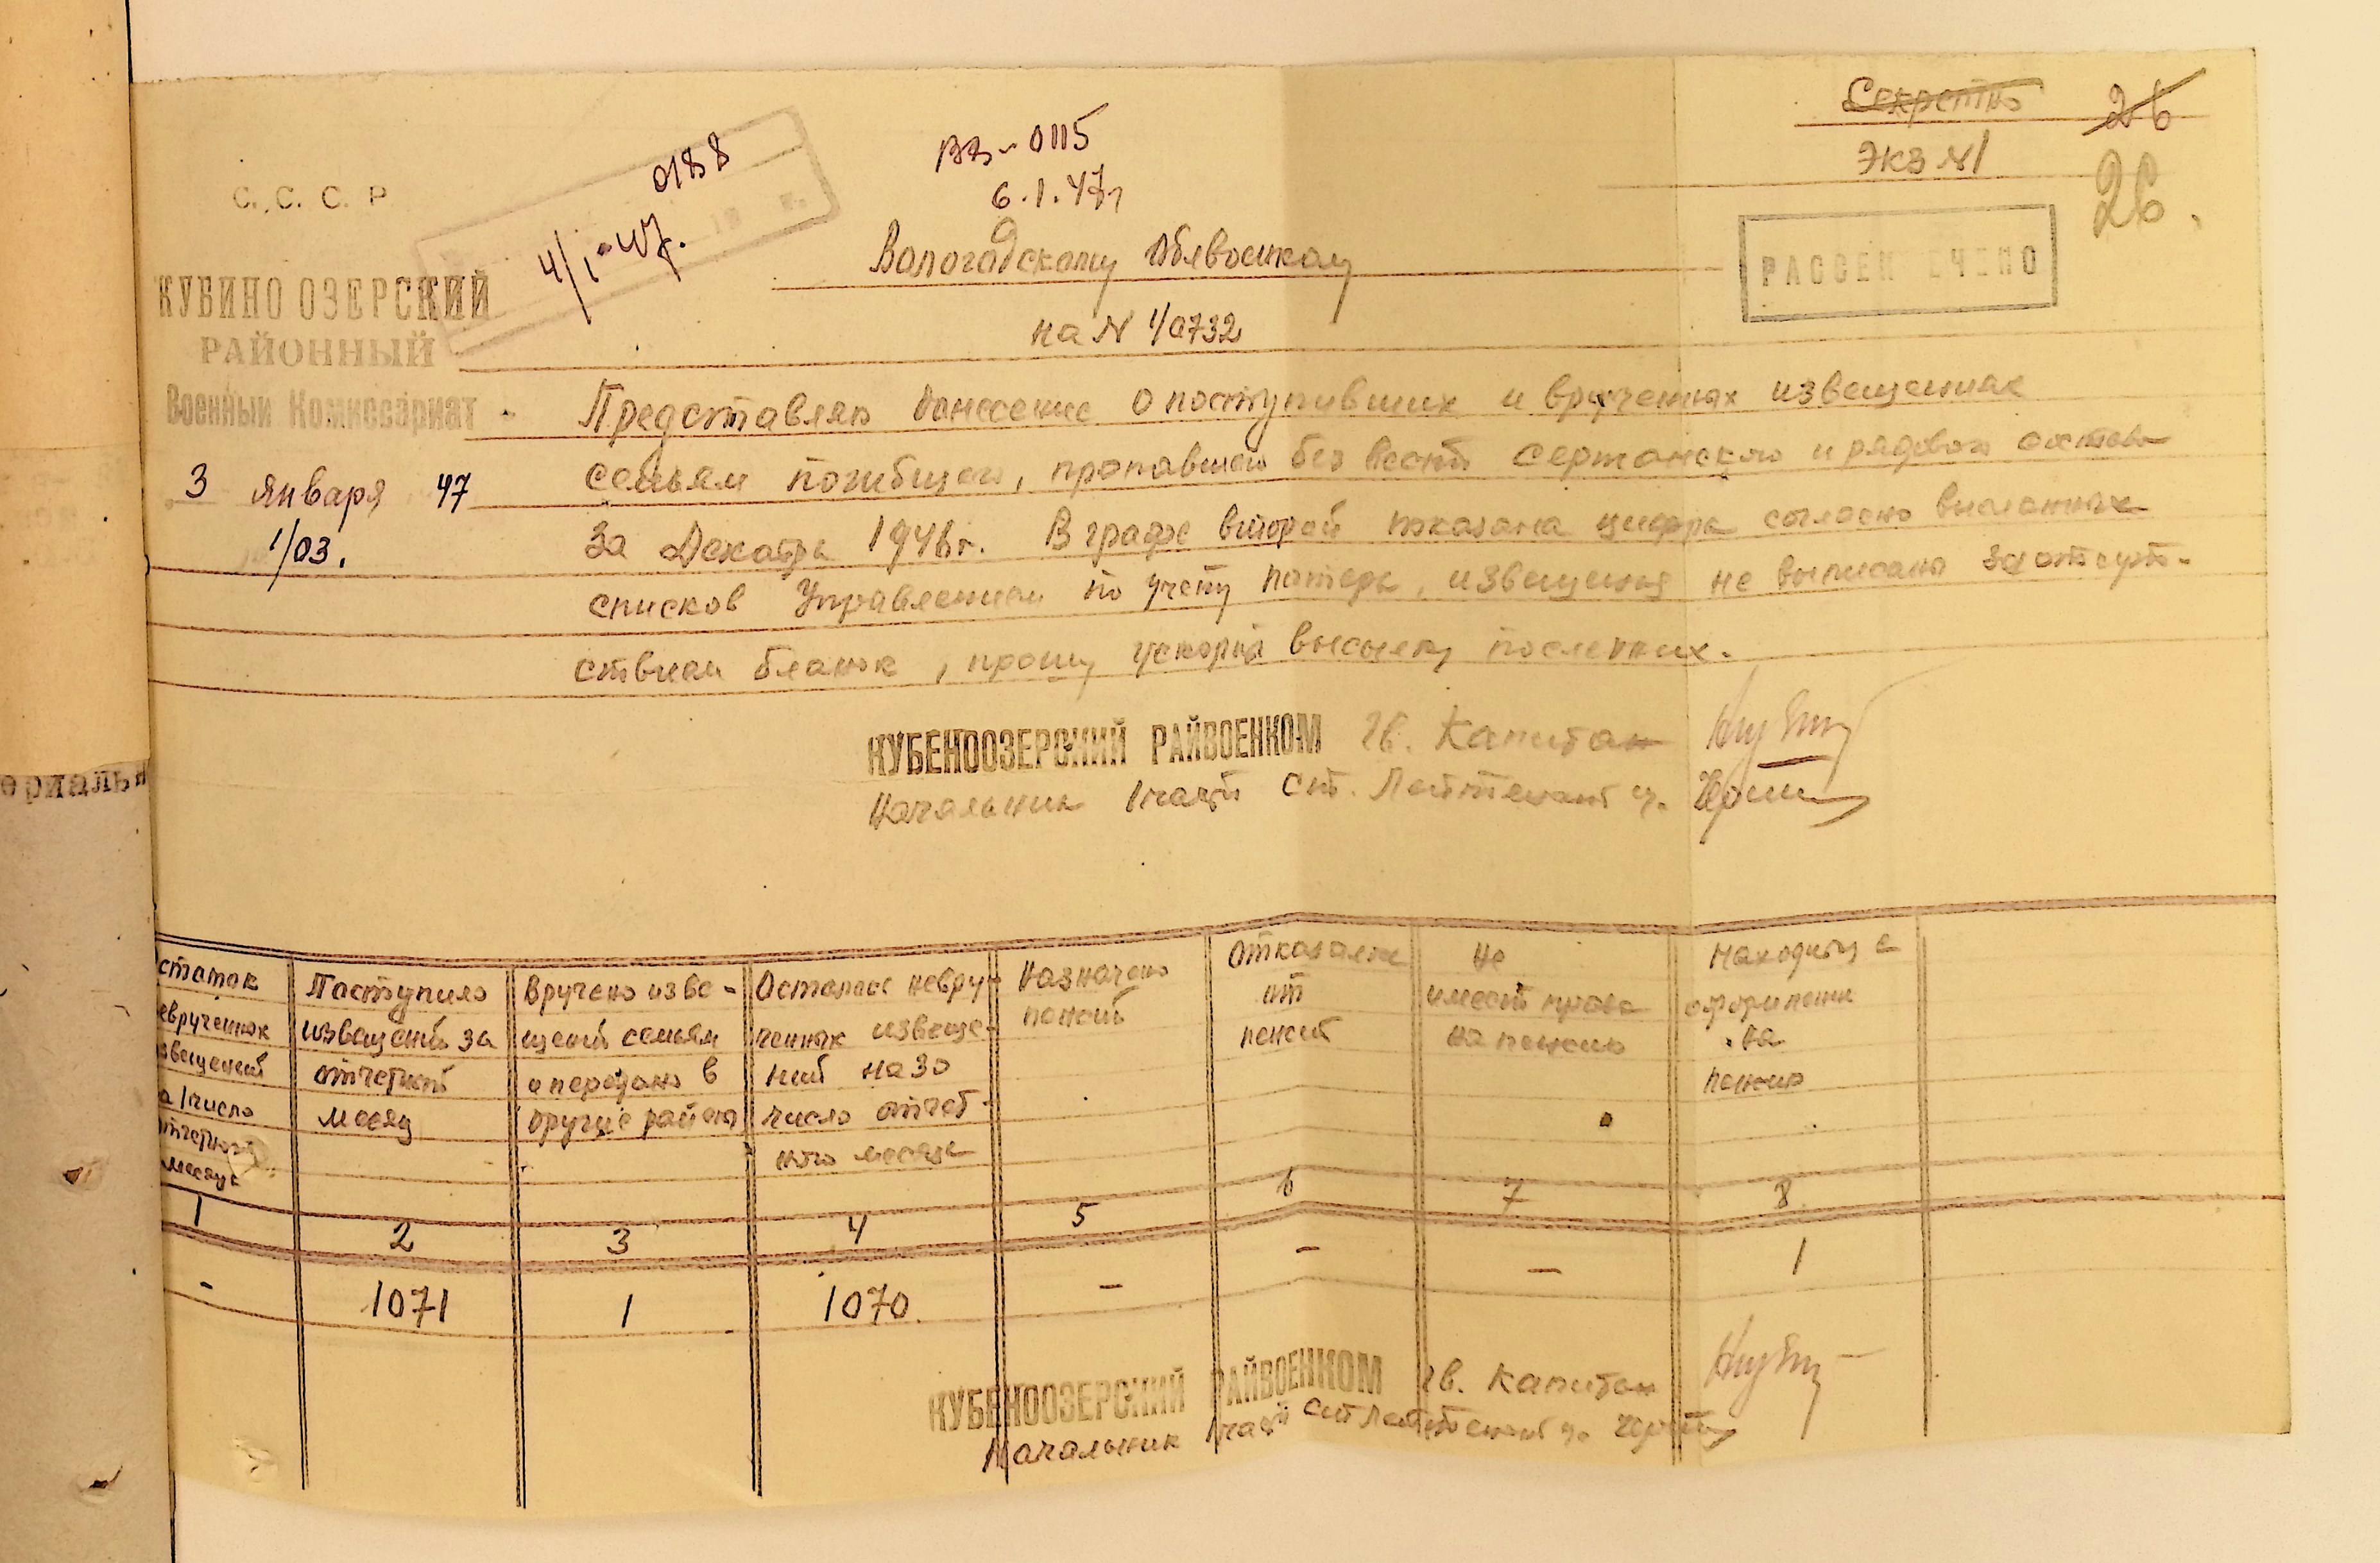 Секретно
26
ЭКЗ №1
26.
РАССЕК ЕЧЕНО
С. С. С. Р
КУБИНО ОЗЕРСКИЙ
РАЙОННЫЙ
Военный Комиссариат
3 января 47
1/03.
0188
4/I-47.
ВВ-0115
6.1.47г
Вологодскому Облвоенкому
на N 1/0732
Представляю донесение о поступивших и врученных извещениях
семьям погибшего, пропавшего без вести сержанского и рядового состава
За Декабрь 1946г. В графе второй показана цифра согласно высланных
списков Управлением по учету потерь, извещения не выписаны за отсут-
ствием бланок, прошу ускорить высылку последних.
КУБЕНООЗЕРСКИЙ РАЙВОЕНКОМ Гв. Капитан
Начальник 1 части Ст. Лейтенант
ериальн
статок
еврученных
звещений
а 1 число
отчетного
месяца
Поступило
извещений за
отчетный
месяц
Вручено изве-
щений семьям
и передано в
другие районы
Осталось невру-
ченных извеще-
ний на 30
число отчет-
ного месяца
Назначено
пенсий
Отказались
от
пенсий
Не
имеют права
на пенсию
Находится в
оформлении
на
пенсию
1 2 3 4 5 6 7 8
- 1071 1 1070 - - - 1
КУБЕНООЗЕРСКИЙ РАЙВОЕНКОМ Гв. Капитан
Начальник 1 части Ст Лейтенант